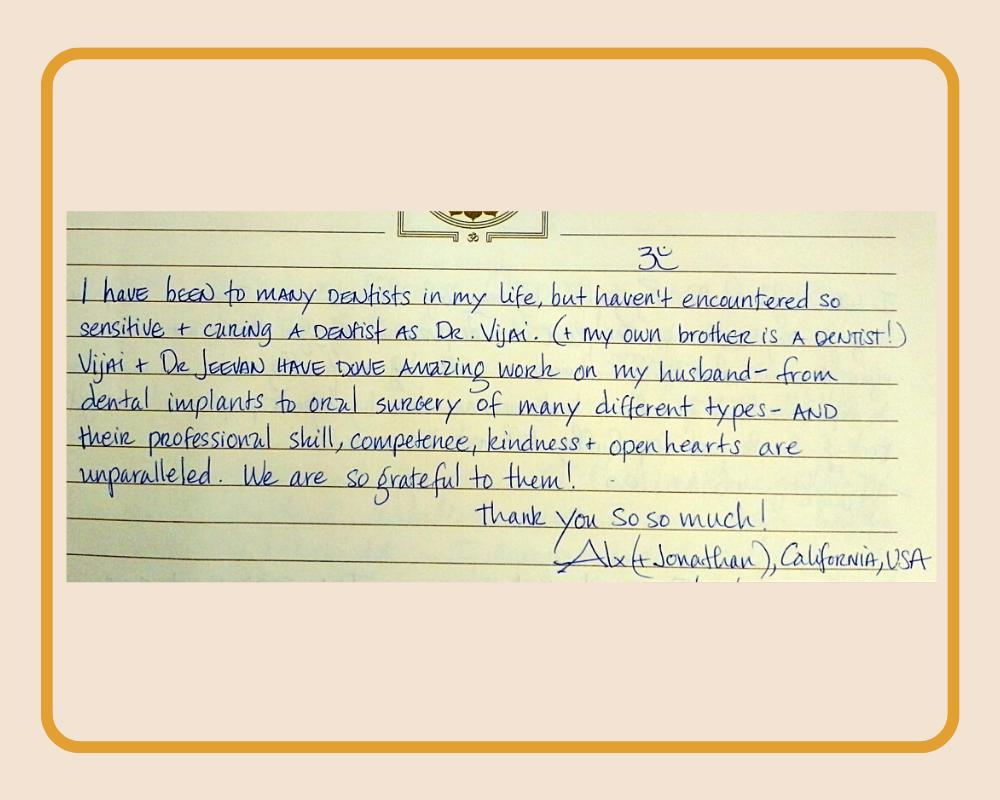 ॐ
ॐ
I have been to many dentists in my life, but haven't encountered so
sensitive + caring a dentist as Dr. Vijai. (+ my own brother is a dentist!)
Vijai + Dr Jeevan have done amazing work on my husband - from
dental implants to oral surgery of many different types - AND
their professional skill, competence, kindness + open hearts are
unparalleled. We are so grateful to them!
Thank you so so much!
Alx (+ Jonathan), California, USA